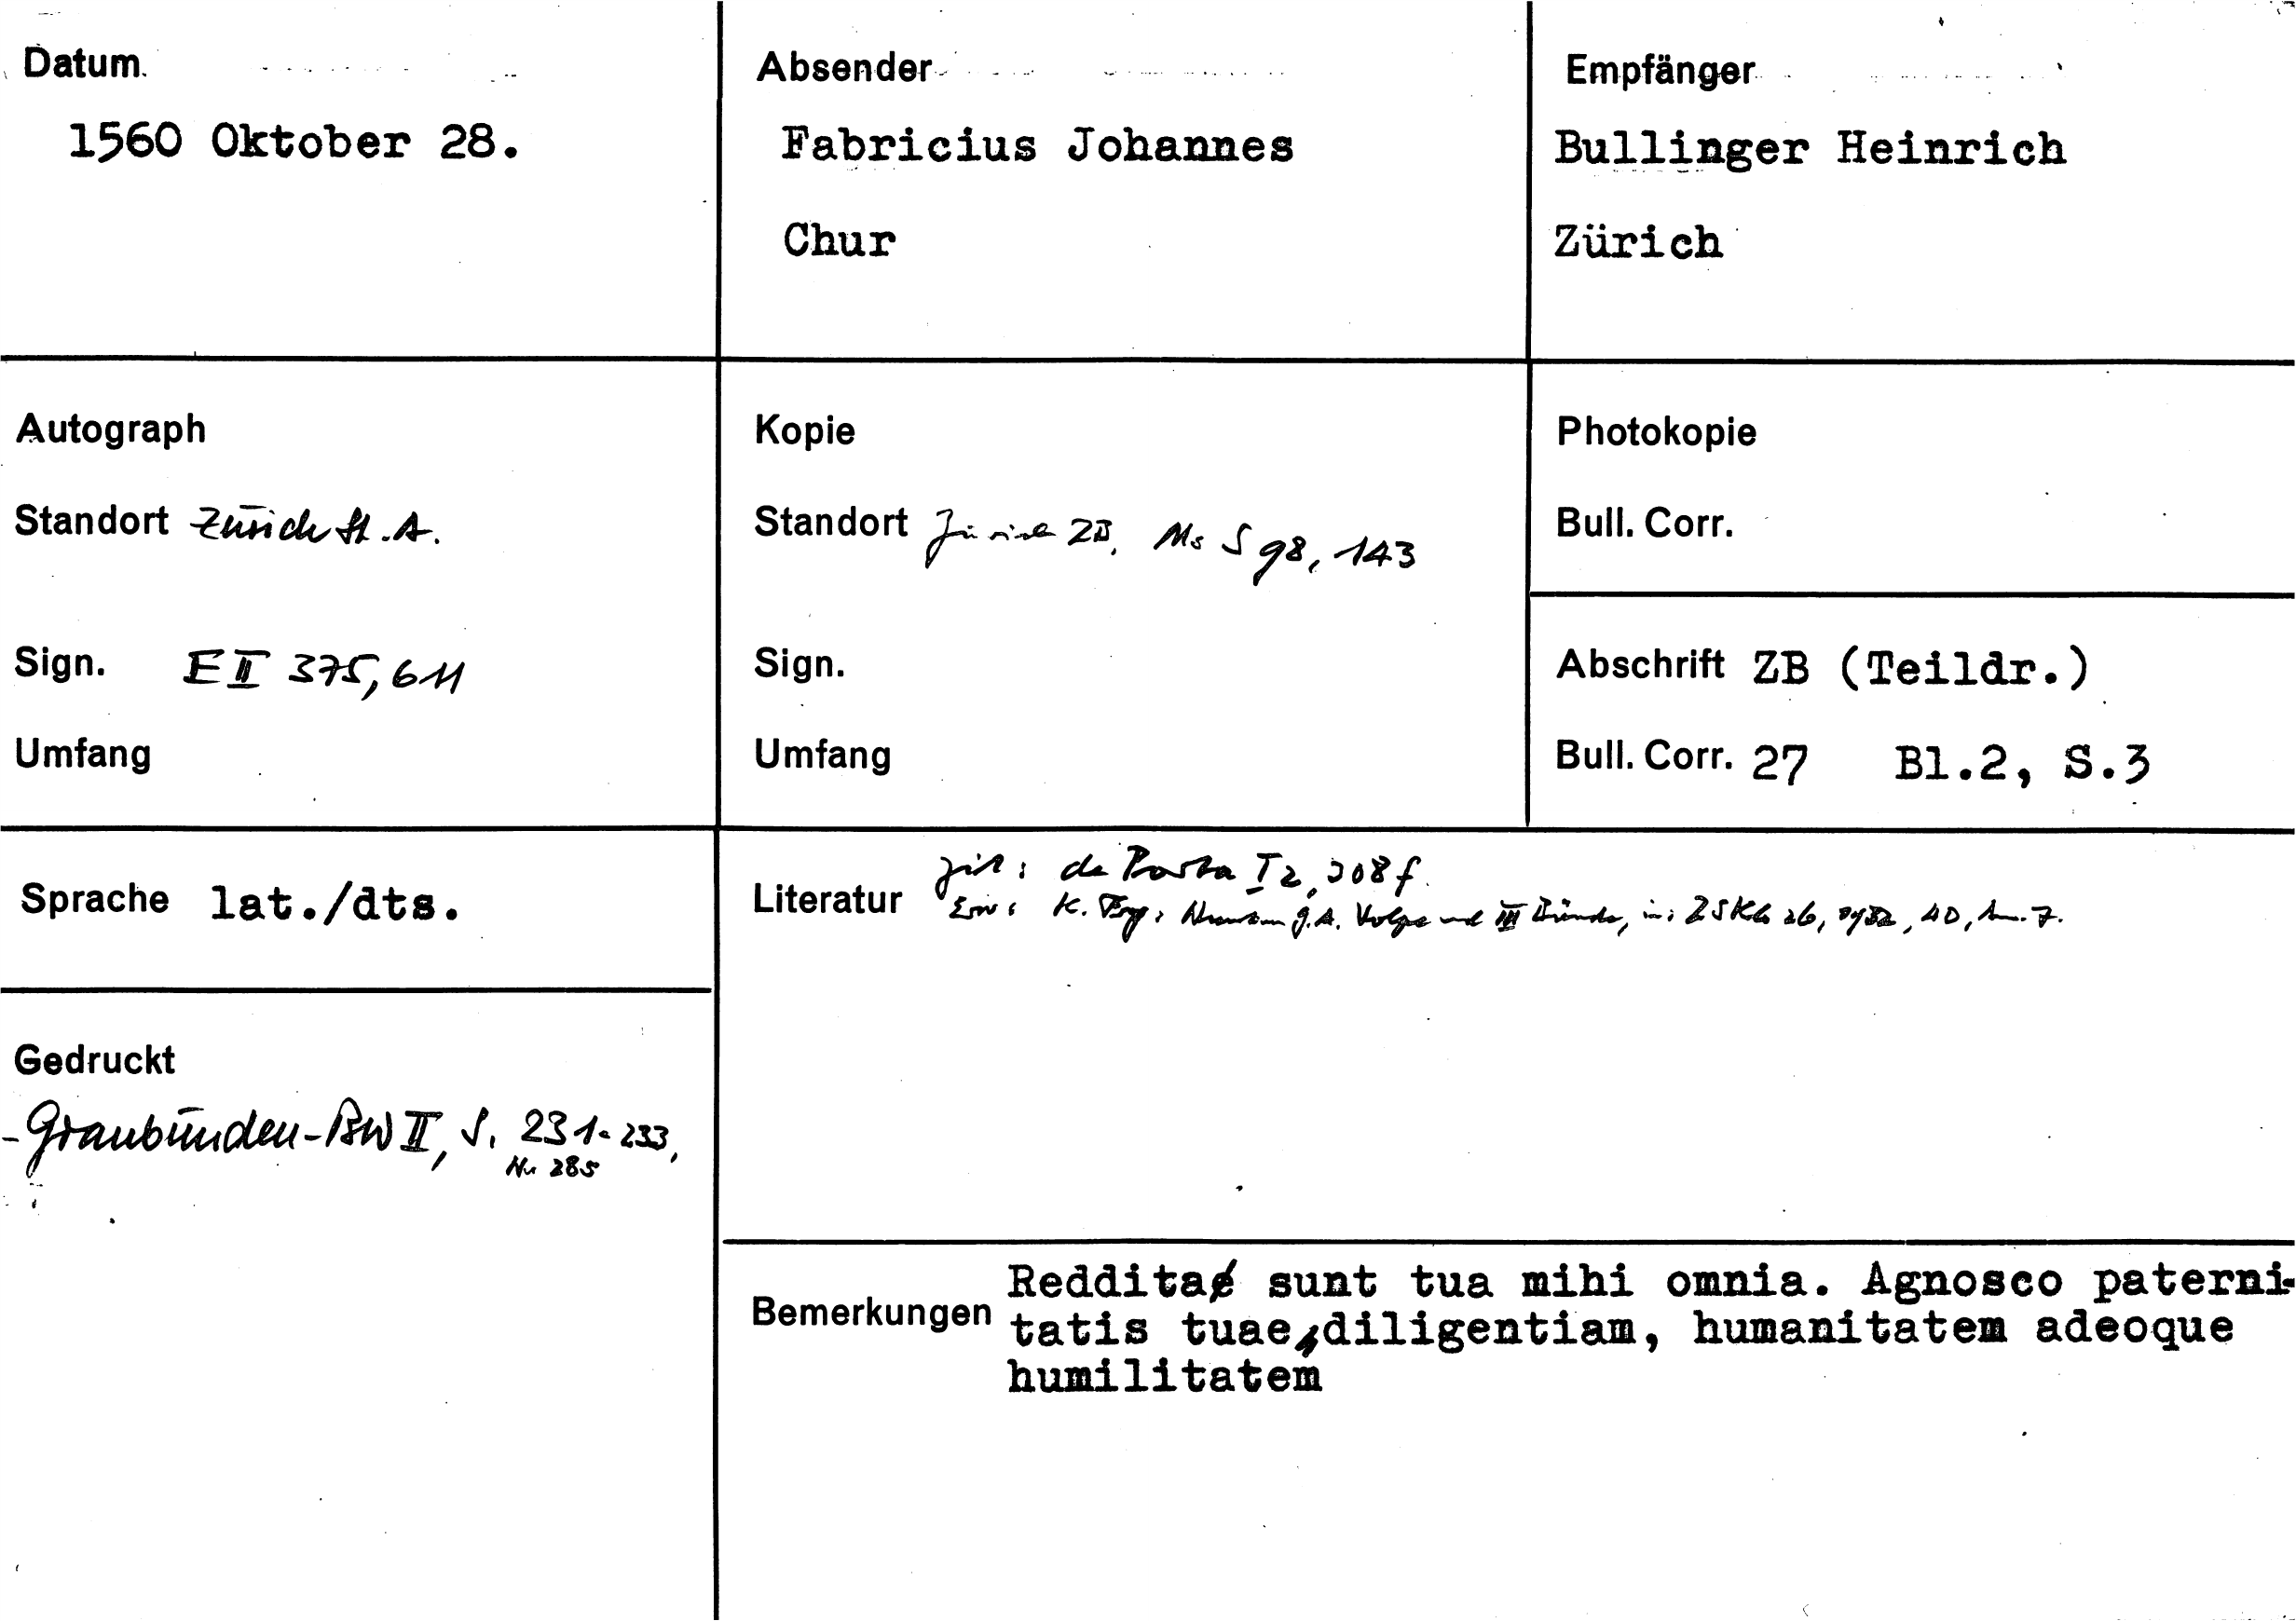 Datum
1560 Oktober 28.
Absender
Fabricius Johannes
Chur
Empfänger
Bullinger Heinrich
Zürich
Autograph
Standort Zürich St.A.
Sign. E II 375, 611
Umfang
Kopie
Standort Zürich ZB, Ms S 98, 143
Sign.
Umfang
Photokopie
Bull. Corr.
Abschrift ZB (Teildr.)
Bull. Corr. 27 Bl.2, S.3
Sprache lat./dts.
Literatur
zit: de Porta I 2, 308 f.
Erw: K. J.A. Volpe und III Bünde, in: ZSKG 26, 40, Anm. 7.
Gedruckt
- Graubünden-BW II, S. 231-233,
Nr. 285
Bemerkungen
Reddita sunt tua mihi omnia. Agnosco paterni-
tatis tuae diligentiam, humanitatem adeoque
humilitatem